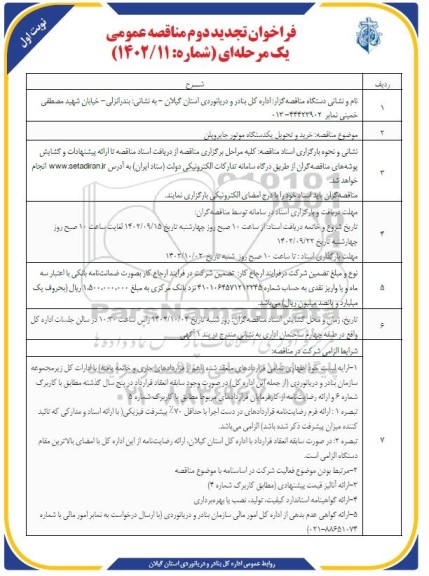 نوبت اول
فراخوان تجدید دوم مناقصه عمومی
یک مرحله‌ای (شماره: ۱۴۰۲/۱۱)
ردیف
شرح
۱
نام و نشانی دستگاه مناقصه‌گزار: اداره کل بنادر و دریانوردی استان گیلان – به نشانی: بندرانزلی – خیابان شهید مصطفی
خمینی نمابر ۴۴۴۲۳۹۰۲-۰۱۳
۲
موضوع مناقصه: خرید و تحویل یکدستگاه موتور جایروپلن
۳
نشانی و نحوه بارگزاری اسناد مناقصه: کلیه مراحل برگزاری مناقصه از دریافت اسناد مناقصه تا ارائه پیشنهادات و گشایش
پوشه‌های مناقصه‌گران از طریق درگاه سامانه تدارکات الکترونیکی دولت (ستاد ایران) به آدرس www.setadiran.ir انجام
خواهد شد.
مناقصه‌گران باید اسناد خود را با درج امضای الکترونیکی بارگزاری نمایند.
۴
مهلت دریافت و بارگزاری اسناد در سامانه توسط مناقصه‌گران:
تاریخ شروع و خاتمه دریافت اسناد: از ساعت ۱۰ صبح روز چهارشنبه تاریخ ۱۴۰۲/۰۹/۱۵ لغایت ساعت ۱۰ صبح روز
چهارشنبه تاریخ ۱۴۰۲/۰۹/۲۲
مهلت بارگذاری اسناد: تا ساعت ۱۰ صبح روز شنبه تاریخ ۱۴۰۲/۱۰/۰۲
۵
نوع و مبلغ تضمین شرکت درفرایند ارجاع کار: تضمین شرکت در فرایند ارجاع کار بصورت ضمانتنامه بانکی با اعتبار سه
ماه و یا واریز نقدی به حساب شماره نزد بانک مرکزی به مبلغ ۱.۵۰۰.۰۰۰.۰۰۰ ریال (بحروف یک
میلیارد و پانصد میلیون ریال) می‌باشد.
۶
تاریخ، زمان و محل گشایش اسناد مناقصه‌گران: روز شنبه تاریخ ۱۴۰۲/۱۰/۰۲ راس ساعت ۱۰:۳۰ در سالن جلسات اداره کل
واقع در طبقه چهارم ساختمان اداری به نشانی مندرج در بند ۱ آگهی
۷
شرایط الزامی شرکت در مناقصه:
۱-ارایه لیست خود اظهاری تمامی قراردادهای منعقد شده (اعم از قراردادهای جاری و خاتمه یافته) با ادارات کل زیرمجموعه
سازمان بنادر و دریانوردی (از جمله این اداره کل) در صورت وجود سابقه انعقاد قرارداد در پنج سال گذشته مطابق با کاربرگ
شماره ۶ و ارائه رضایت‌نامه از کارفرمایان قراردادهای مربوط مطابق با کاربرگ شماره ۵
تبصره ۱ : ارائه فرم رضایت‌نامه قراردادهای در دست اجرا با حداقل ۷۰٪ پیشرفت فیزیکی( با ارائه اسناد و مدارکی که تائید
کننده میزان پیشرفت ذکر شده باشد) الزامی می‌باشد.
تبصره ۲: در صورت سابقه انعقاد قرارداد با اداره کل استان گیلان، ارائه رضایت‌نامه از این اداره کل با امضای بالاترین مقام
دستگاه الزامی است.
۲-مرتبط بودن موضوع فعالیت شرکت در اساسنامه با موضوع مناقصه
۳-ارائه آنالیز قیمت پیشنهادی (مطابق کاربرگ شماره ۴)
۴-ارائه گواهینامه استاندارد کیفیت، تولید، نصب یا بهره‌برداری
۵-ارائه گواهی عدم بدهی از اداره کل امور مالی سازمان بنادر و دریانوردی (با ارسال درخواست به نمابر امور مالی با شماره
۸۸۶۵۱۰۷۴-۰۲۱)
روابط عمومی اداره کل بنادر و دریانوردی استان گیلان